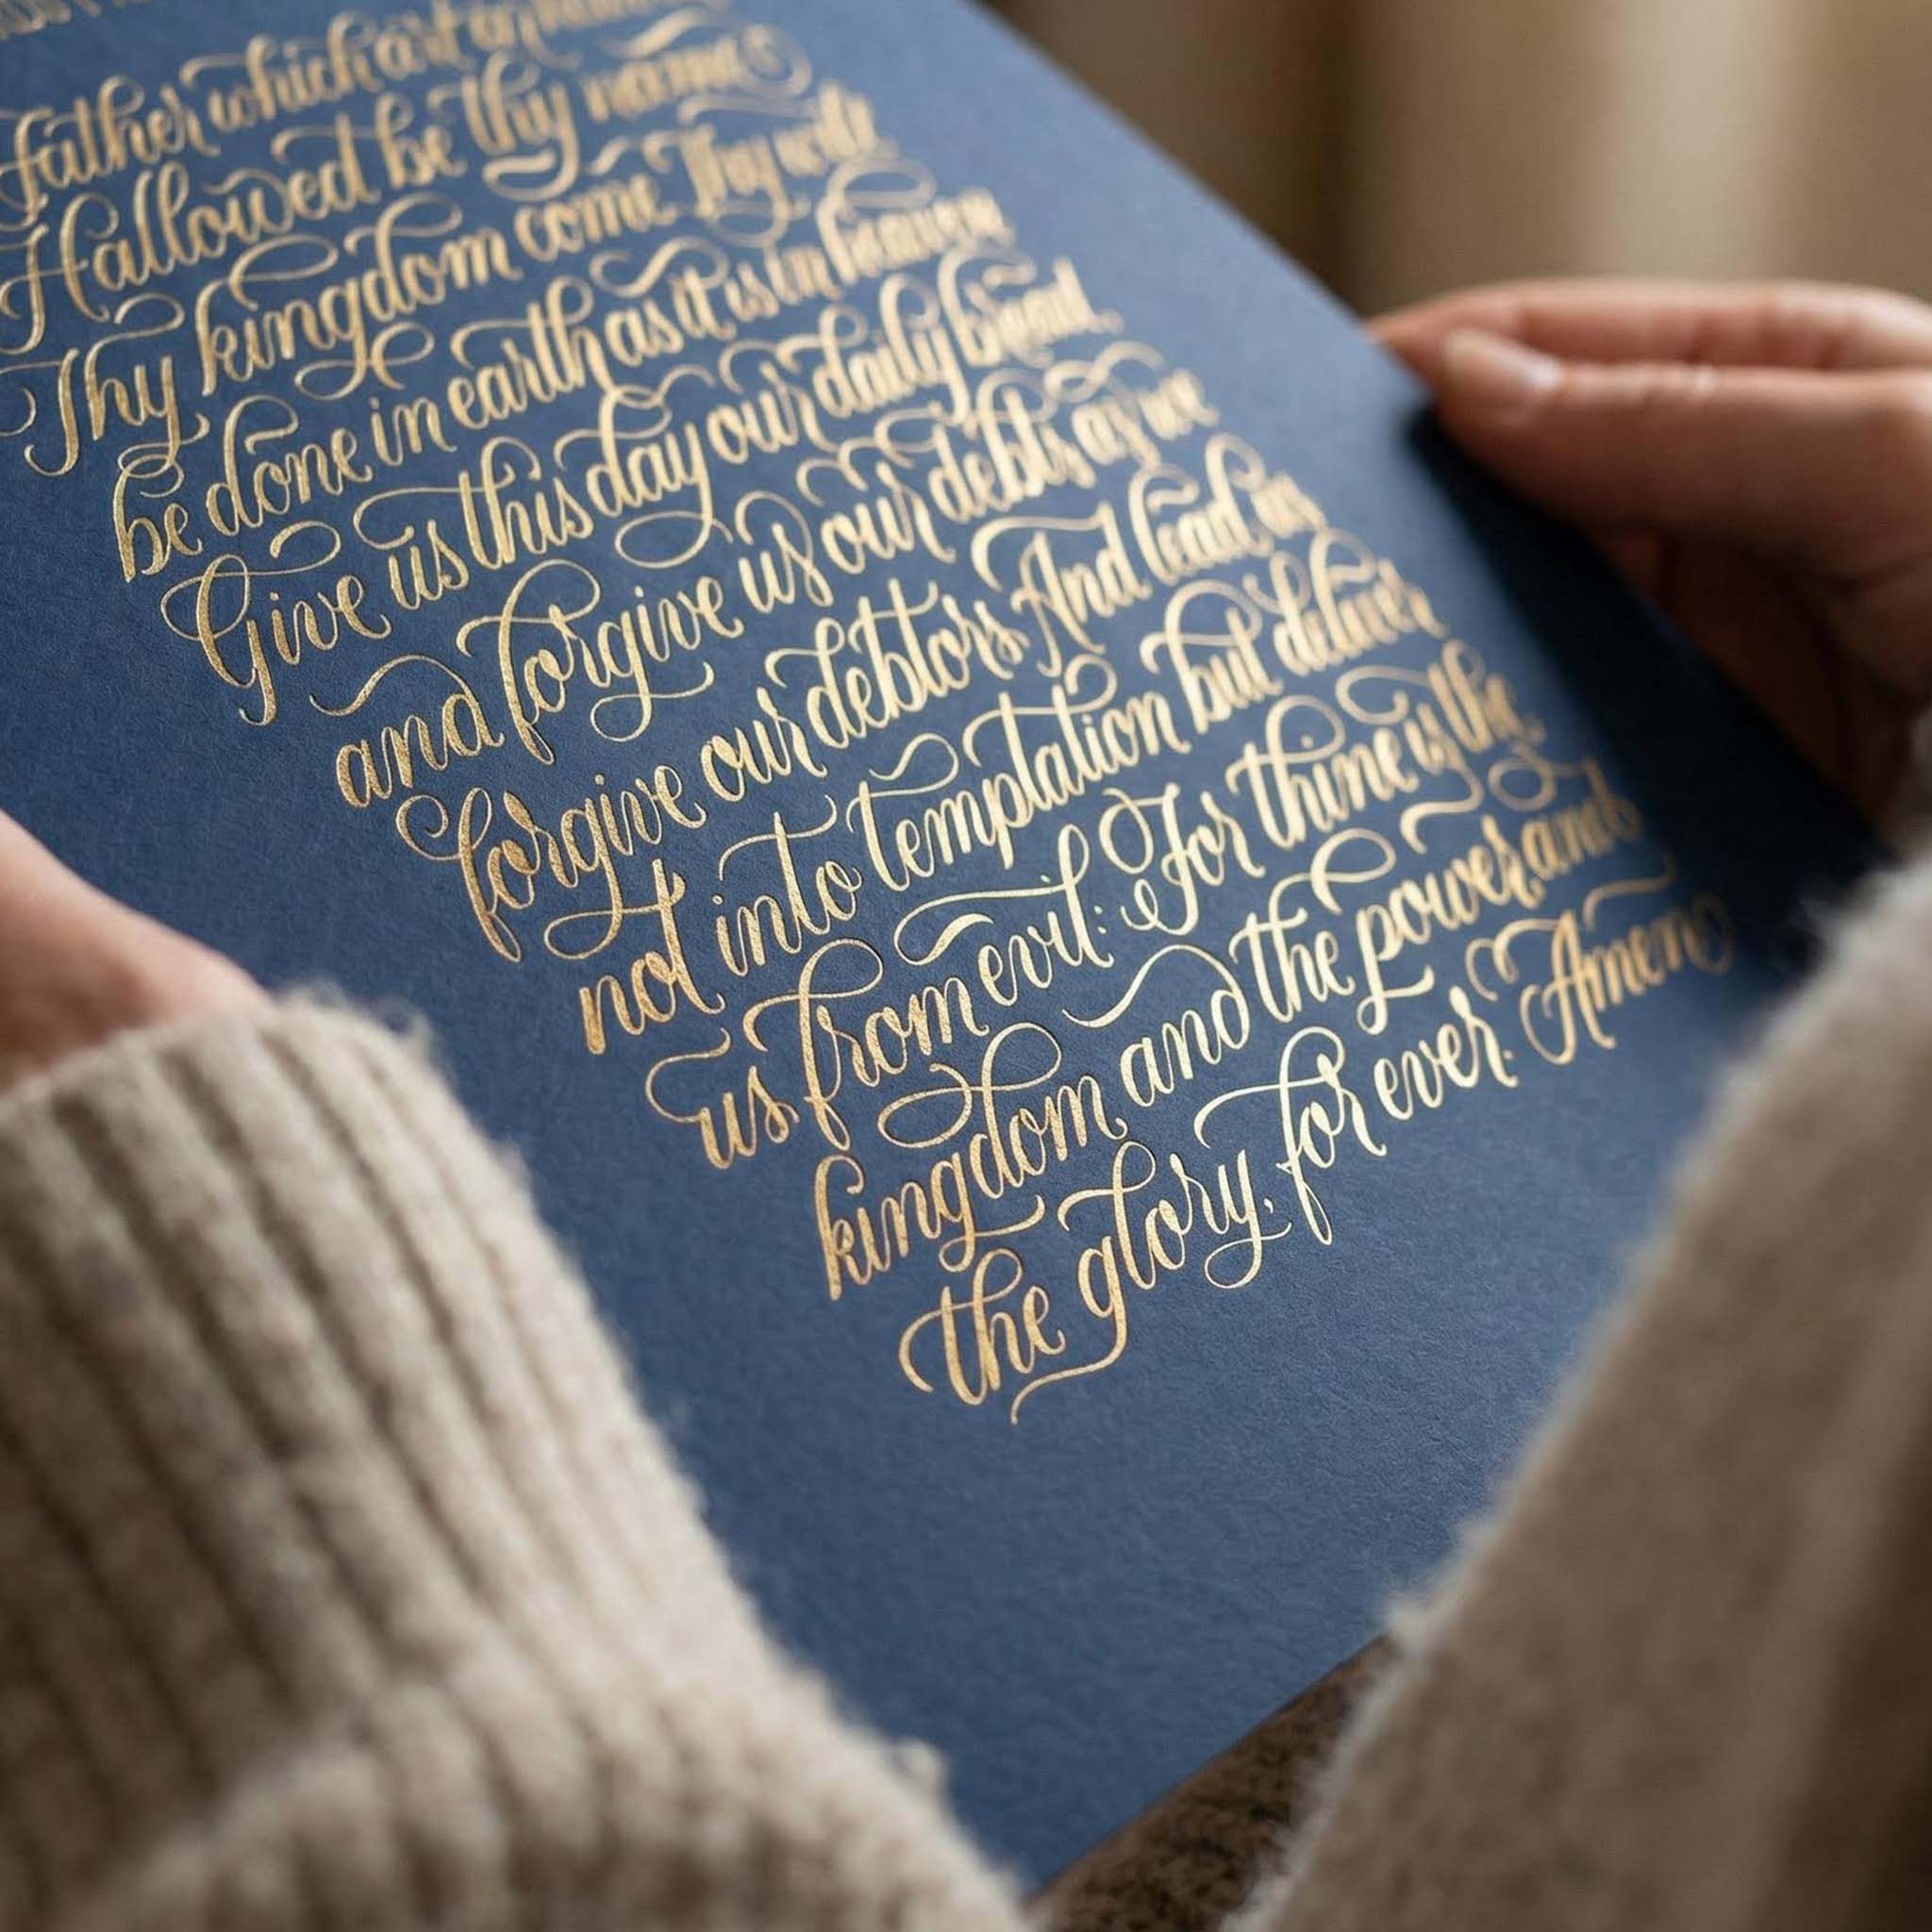 Father which art in
Hallowed be thy name
Thy kingdom come Thy will
be done in earth as it is in heaven
Give us this day our daily bread.
and forgive us our debts as we
forgive our debtors And lead us
not into temptation but deliver
us from evil: For thine is the
kingdom and the power and
the glory, for ever. Amen